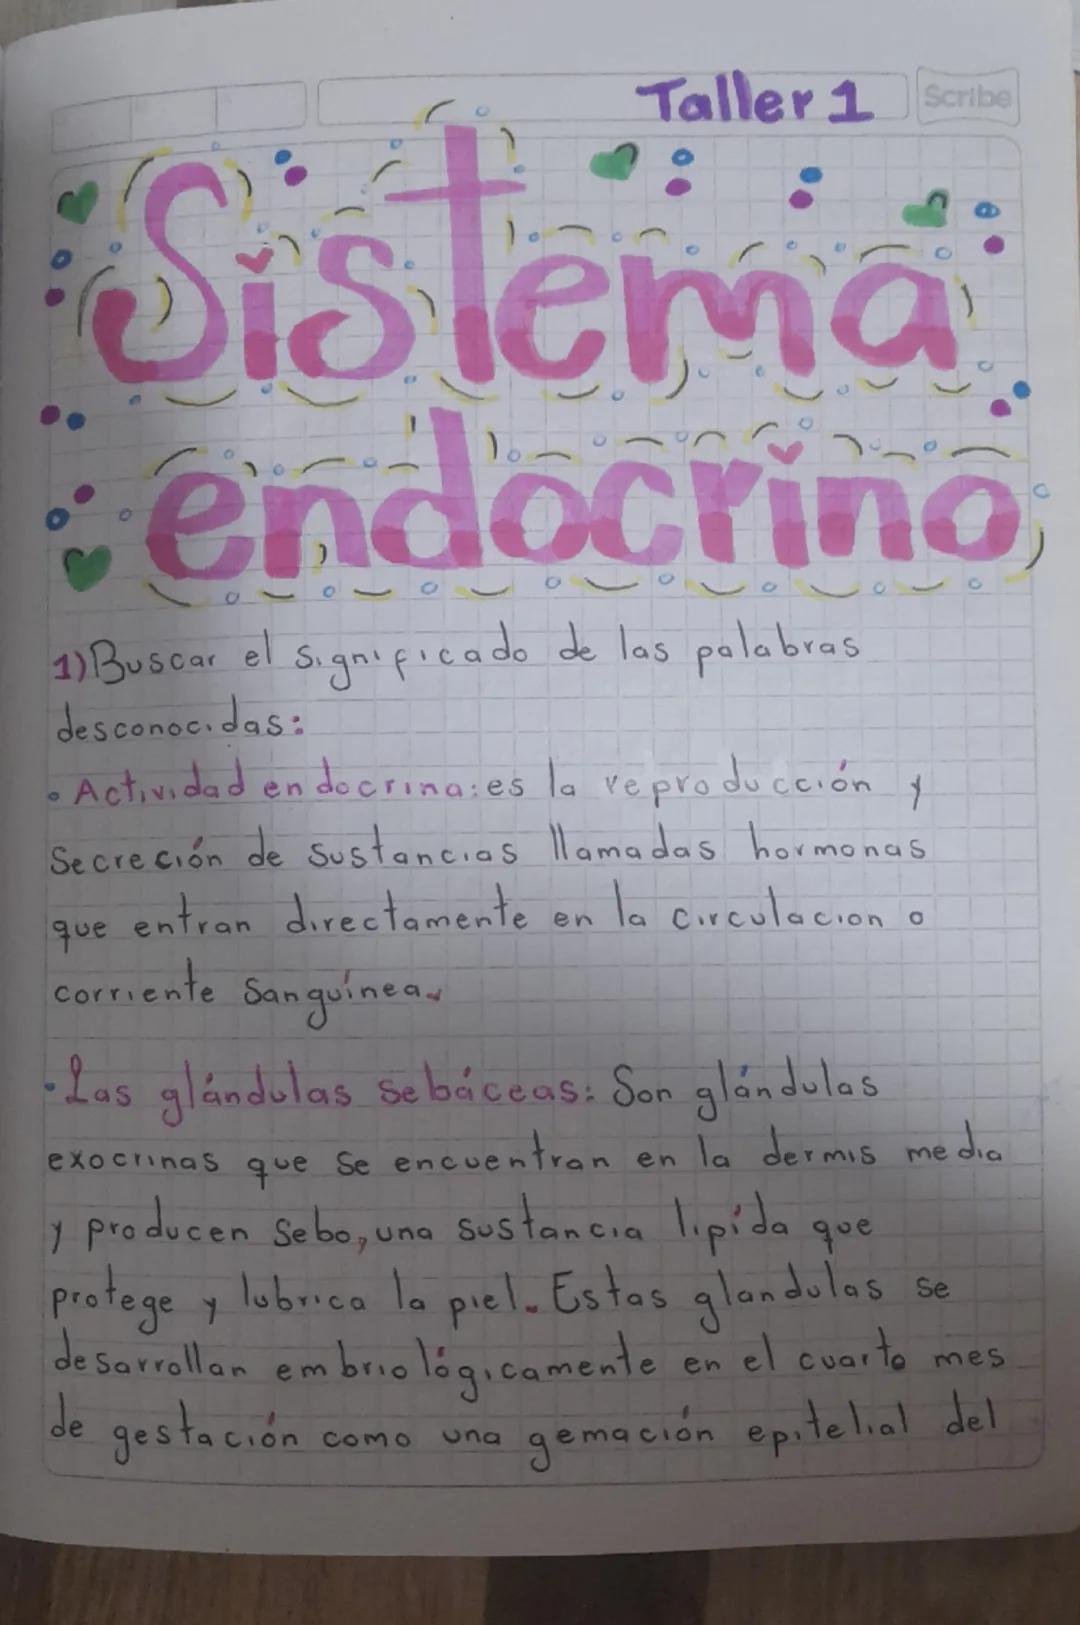 Taller 1
Scribe
Sistema
endocrino
1) Buscar el significado de las palabras
desconocidas:
• Actividad endocrina: es la reproducción y
secreción de sustancias llamadas hormonas
que entran directamente en la circulacion o
corriente sanguínea.
• Las glándulas sebáceas: Son glándulas
exocrinas que se encuentran en la dermis media
y producen sebo, una sustancia lipída que
protege y lubrica la piel. Estas glandulas se
desarrollan embriológicamente en el cuarto mes
de gestación como una gemación epitelial del